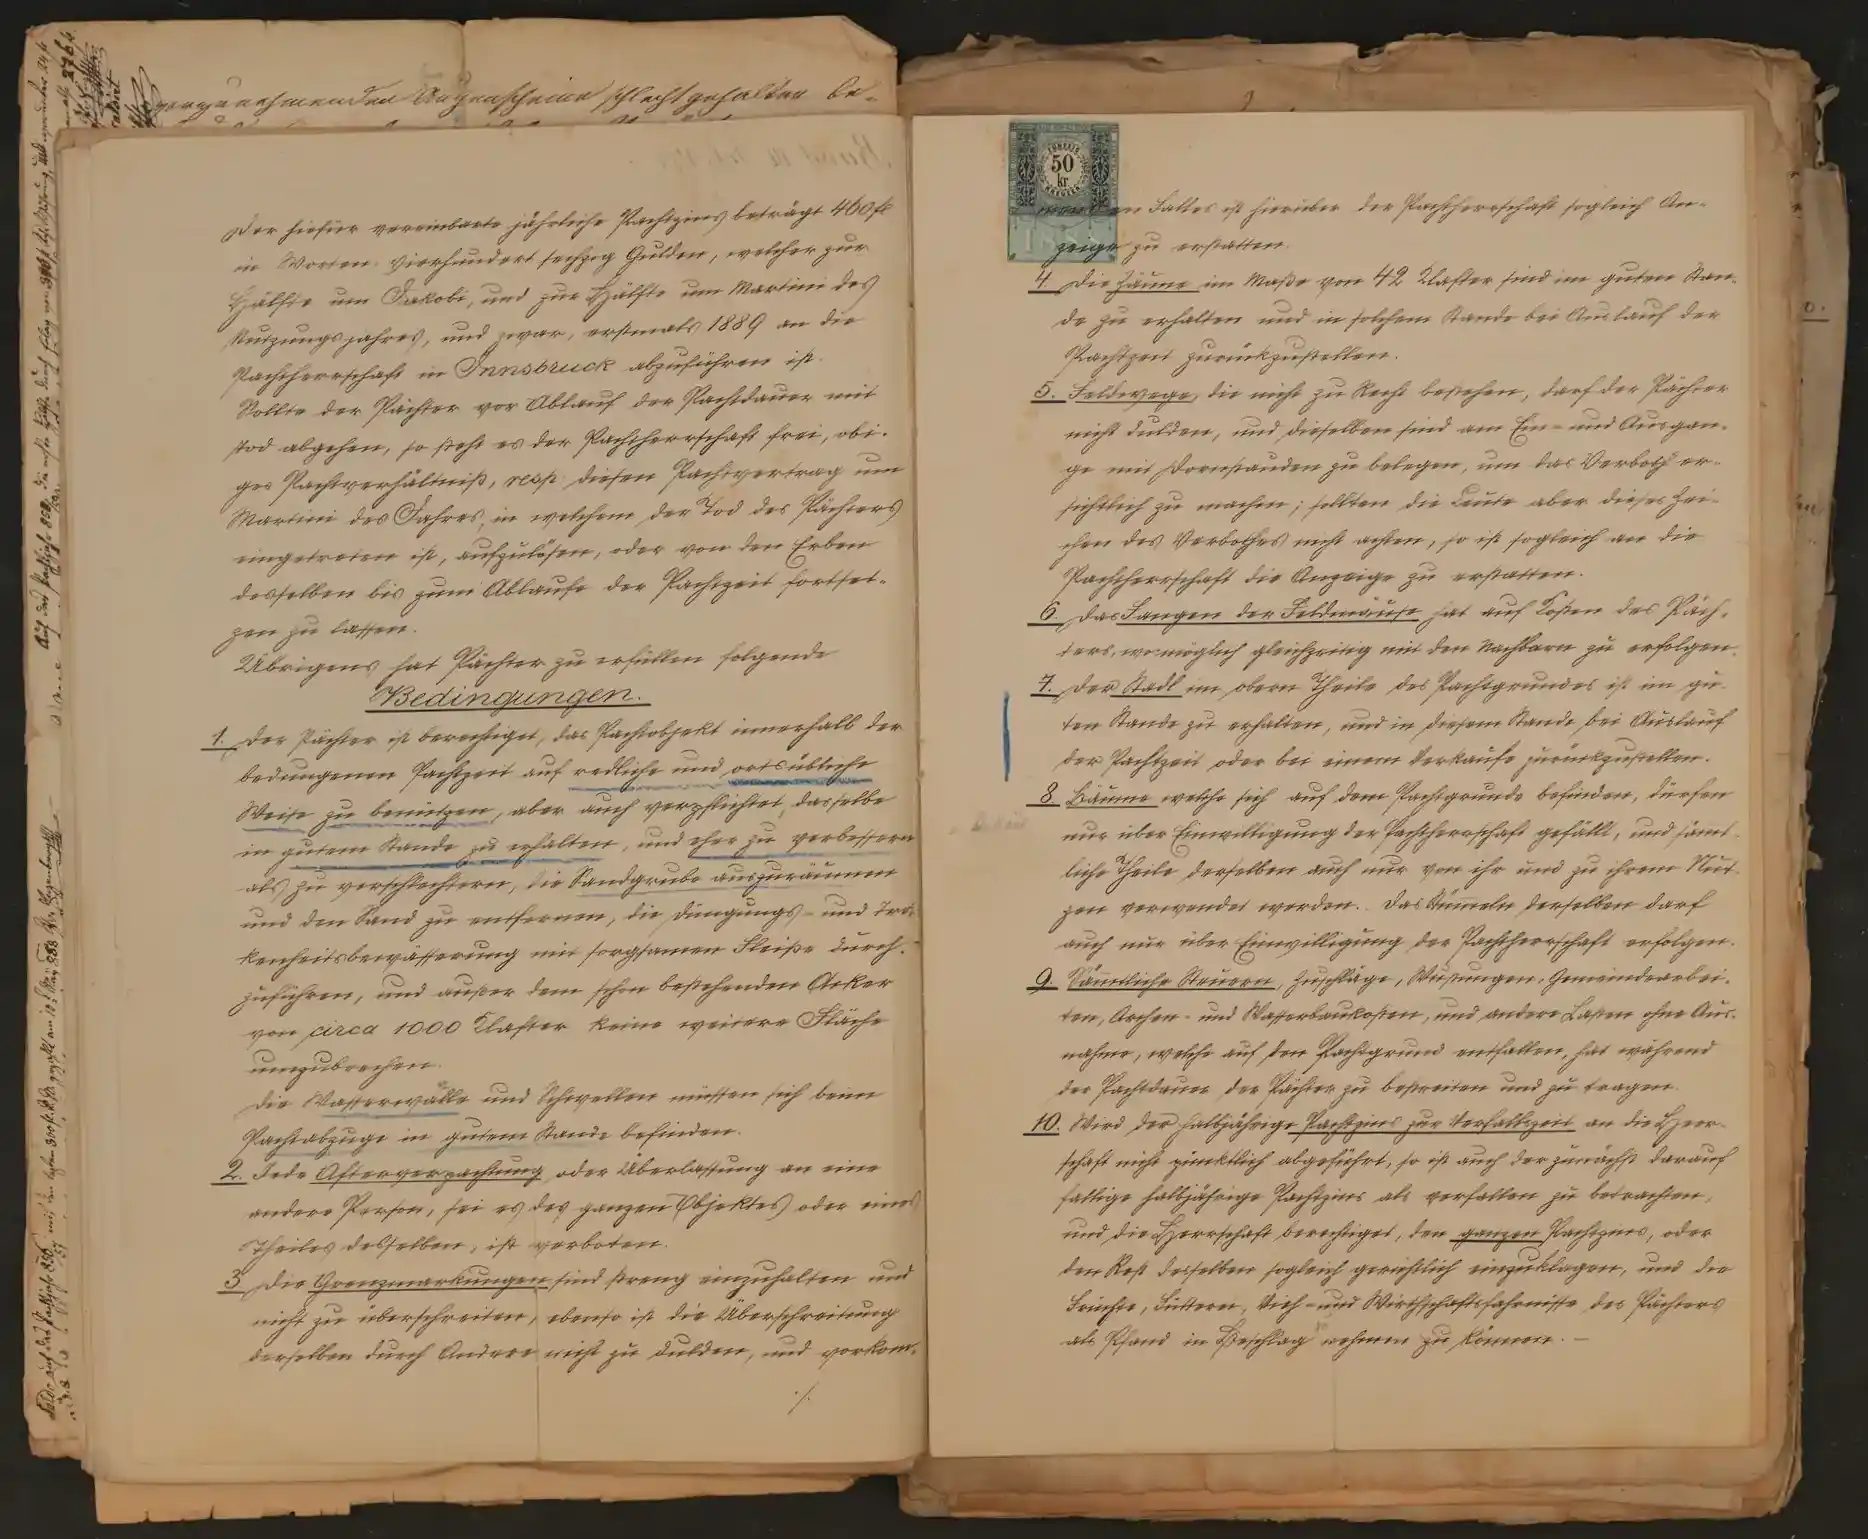 vorzunehmenden Augenscheine schlecht gehalten be-
Der hiefür vereinbarte jährliche Pachtzins beträgt 460 fl
in Worten: vierhundert sechzig Gulden, welcher zur
Hälfte um Jakobi, und zur Hälfte um Martini des
Nutzungsjahres, und zwar, erstmals 1889 an die
Pachtherrschaft in Innsbruck abzuführen ist.
Sollte der Pächter vor Ablauf der Pachtdauer mit
Tod abgehen, so steht es der Pachtherrschaft frei, obi-
ges Pachtverhältniß, resp. diesen Pachtvertrag um
Martini des Jahres, in welchem der Tod des Pächters
eingetreten ist, aufzulösen, oder von den Erben
desselben bis zum Ablaufe der Pachtzeit fortset-
zen zu lassen.
Übrigens hat Pächter zu erfüllen folgende
Bedingungen.
1. Der Pächter ist berechtiget, das Pachtobjekt innerhalb der
bedungenen Pachtzeit auf redliche und ortsübliche
Weise zu benützen, aber auch verpflichtet, dasselbe
in gutem Stande zu erhalten, und eher zu verbessern
als zu verschlechtern, die Sandgrube auszuräumen
und den Sand zu entfernen, die Düngungs- und Tro-
kenheitsbewässerung mit sorgsamen Fleiße durch-
zuführen, und außer dem schon bestehenden Acker
von circa 1000 Klafter keine weitere Fläche
umzubrechen.
Die Wasserwälle und Schwellen müssen sich beim
Pachtabzuge in gutem Stande befinden.
2. Jede Afterverpachtung oder Überlassung an eine
andere Person, sei es des ganzen Objektes oder eines
Theiles desselben, ist verboten.
3. Die Grenzmarkungen sind streng einzuhalten und
nicht zu überschreiten, ebenso ist die Überschreitung
derselben durch Andere nicht zu dulden, und vorkom-
./.
50
kr
menden Falles ist hierüber der Pachtherrschaft sogleich An-
zeige zu erstatten.
4. Die Zäune im Maße von 42 Klafter sind im guten Stan-
de zu erhalten und in solchem Stande bei Auslauf der
Pachtzeit zurückzustellen.
5. Feldwege, die nicht zu Recht bestehen, darf der Pächter
nicht dulden, und dieselben sind am Ein- und Ausgan-
ge mit Dornstauden zu belegen, um das Verboth er-
sichtlich zu machen; sollten die Leute aber dieses Zei-
chen des Verbothes nicht achten, so ist sogleich an die
Pachtherrschaft die Anzeige zu erstatten.
6. Das Fangen der Feldmäuse hat auf Kosten des Päch-
ters, womöglich gleichzeitig mit den Nachbarn zu erfolgen.
7. Der Stadl im obern Theile des Pachtgrundes ist im gu-
ten Stande zu erhalten, und in diesem Stande bei Auslauf
der Pachtzeit oder bei einem Verkaufe zurückzustellen.
8. Bäume welche sich auf dem Pachtgrunde befinden, dürfen
nur über Einwilligung der Pachtherrschaft gefällt, und sämt-
liche Theile derselben auch nur von ihr und zu ihrem Nut-
zen verwendet werden. Das Stümeln derselben darf
auch nur über Einwilligung der Pachtherrschaft erfolgen.
9. Sämtliche Steuern, Zuschläge, Wustungen, Gemeindearbei-
ten, Archen- und Wasserbaukosten, und andere Lasten ohne Aus-
nahme, welche auf den Pachtgrund entfallen, hat während
der Pachtdauer der Pächter zu bestreiten und zu tragen.
10. Wird der halbjährige Pachtzins zur Verfallszeit an die Herr-
schaft nicht pünktlich abgeführt, so ist auch der zunächst darauf
fällige halbjährige Pachtzins als verfallen zu betrachten,
und die Herrschaft berechtiget, den ganzen Pachtzins, oder
den Rest desselben sogleich gerichtlich einzuklagen, und die
Früchte, Futtern, Vieh- und Wirthschaftsfahrnisse des Pächters
als Pfand in Beschlag nehmen zu können. —